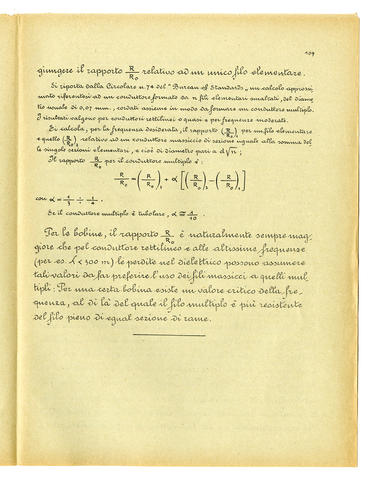 109
giungere il rapporto R/R₀ relativo ad un unico filo elementare.
Si riporta dalla Circolare n. 74 del "Bureau of Standards" un calcolo approssi,
mato riferentesi ad un conduttore formato da n fili elementari smaltati, del diame,
tro usuale di 0,07 mm., cordati assieme in modo da formare un conduttore multiplo.
I risultati valgono per conduttori rettilinei o quasi e per frequenze moderate.
Si calcola, per la frequenza desiderata, il rapporto (R/R₀)₁ per un filo elementare
e quello (R/R₀)₂ relativo ad un conduttore massiccio di sezione uguale alla somma del,
le singole sezioni elementari, e cioè di diametro pari a d√n;
Il rapporto R/R₀ per il conduttore multiplo è:
R/R₀ = (R/R₀)₁ + α [(R/R₀)₂ − (R/R₀)₁]
con α = 1/ ÷ 1/4.
Se il conduttore multiplo è tubolare, α ≅ 1/10.
Per le bobine, il rapporto R/R₀ è naturalmente sempre mag,
giore che pel conduttore rettilineo e alle altissime frequenze
(per es. λ < 300 m) le perdite nel dielettrico possono assumere
tali valori da far preferire l'uso dei fili massicci a quelli mul,
tipli. Per una certa bobina esiste un valore critico della fre,
quenza, al di là del quale il filo multiplo è più resistente
del filo pieno di egual sezione di rame.